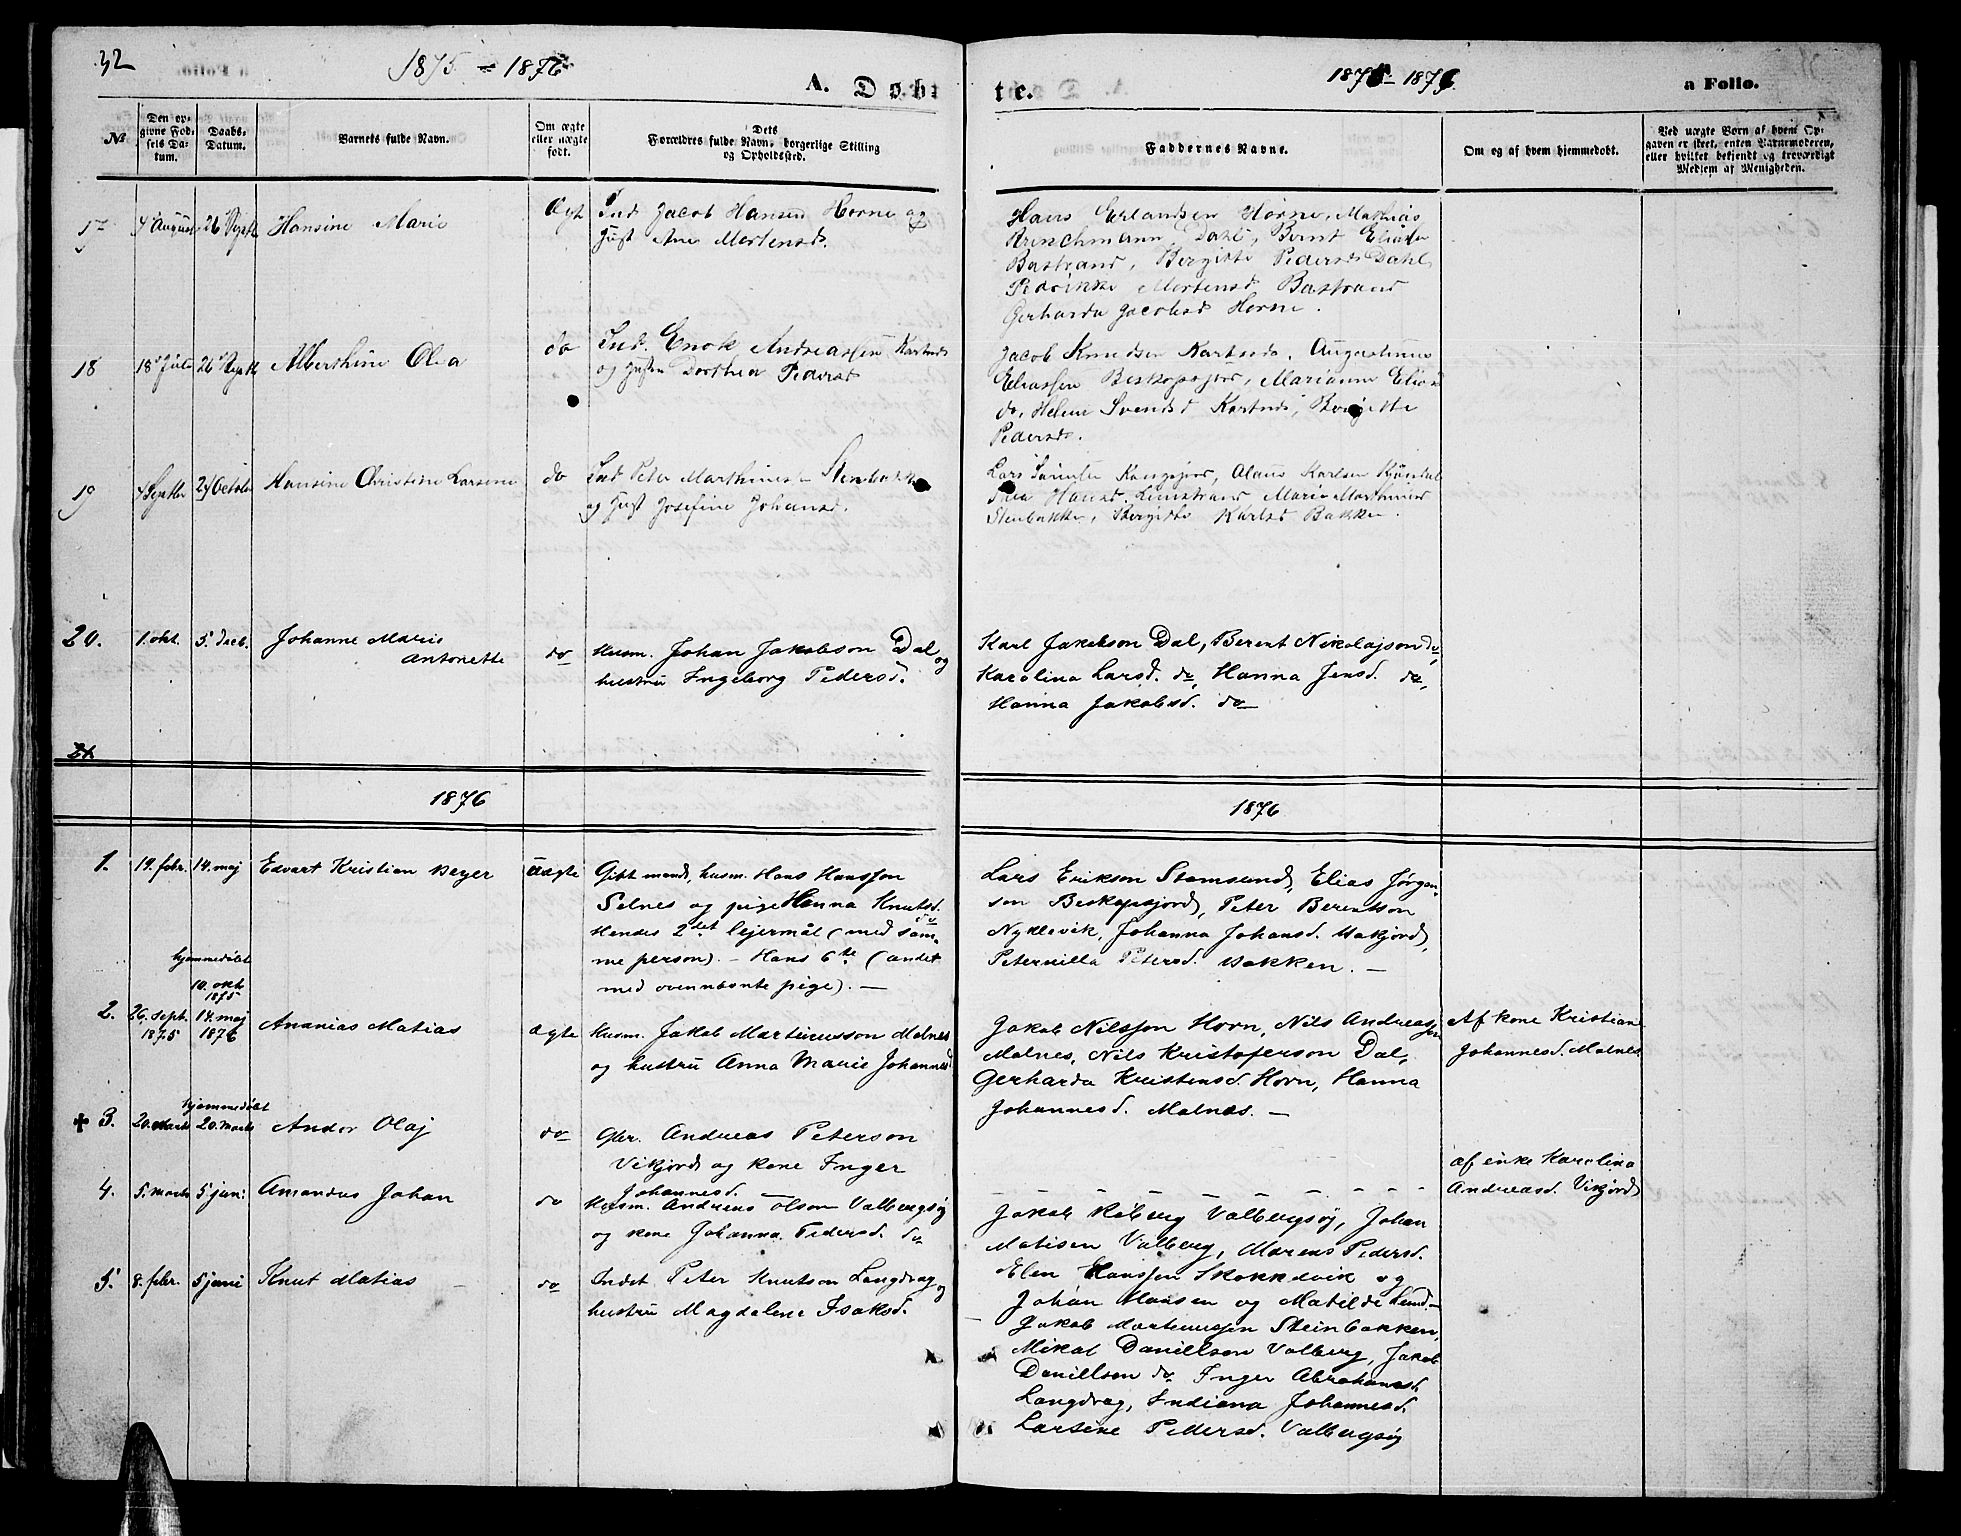 32
1875 - 1876
A. Døbte.
1875 - 1876
a Folio.
No
Den opgivne Fødsels Datum.
Daabs-Datum.
Barnets fulde Navn.
Om ægte eller uægte født.
Dets Forældres fulde Navn, borgerlige Stilling og Opholdssted.
Faddernes Navne.
Om og af hvem hjemmedøbt.
Ved uægte Børn af hvem Opgaven er skeet, enten Barnemoderen, eller hvilket bekjendt og troværdigt Medlem af Menigheden.
17
4 August
26 Septb
Hansine Marie
Ægt
Ind Jacob Hansen Horne og
Hust Ane Mortensd.
Hans Erlandsen Horne, Mathias
Dahl, Bernt Eliass
Bastrand, Bergitte Pedersd Dahl
Mortensd Bastrand
Gerharda Jacobsd Horne.
18
18 Juli
26 Septb
Alberthine Olea
do
Ind. Enok Andreassen
og Dorthea Pedersd
Jacob Knudsen Augustinus
Eliassen Marianne Eliasd
do, Helene Svendsd
Pedersd.
19
4 Septbr
24 October
Hansine Christine Larsine
do
Ind Peter Marthiness Stenbakke
og Hust Josefine Johansd.
Lars Olaus Karlsen
Hansd Limstrand Marie Marthinsd
Stenbakke, Bergitte Karlsd Bakke.
20.
1. okt.
5. Decb.
Johanne Marie
Antonette
do
Husm. Johan Jakobson Dal og
hustru Ingeborg Pedersd.
Karl Jakobson Dal, Berent Nikolajson do,
Karolina Larsd. do, Hanna Jensd. do,
Hanna Jakobsd. do
21
1876
1876
1.
19. febr.
14. maj
Edvart Kristian Beyer
uægte
Gift mand, husm. Hans Hansson
Selnes og pige Hanna Knutsd. do
Hendes 2det lejermål (med sam-
me person). - Hans 6te (andet
med ovennævnte pige). -
Lars Erikson Stamsund, Elias Jørgen-
son Beskopsjord, Peter Berentson
Nyklevik, Johanna Johansd. Uakjord,
Peternilla Petersd. Bakken. -
2.
26. sept.
1875
hjemmedøbt
10. okt.
1875
14. maj
1876
Ananias Matias
ægte
Husm. Jakob Martinusson Malnes
og hustru Anna Marie Johannesd
Jakob Nilsson Horn, Nils Andreasson
Malnes, Nils Kristoferson Dal,
Gerharda Kristensd. Horn, Hanna
Johannesd. Malnes. -
Af kone Kristiane
Johannesd. Malnes
+ 3.
20. marts
hjemmedøbt
20. marts
Andor Olaj
do
Gbr. Andreas Peterson
Vikjord og kone Inger
Johannesd. -
- - - - - - - - -
af enke Karolina
Andreasd. Vikjord
4.
5. marts
5 juni
Amandus Johan
do
Husm. Andreas Olson Valbergsøj
og kone Johanna Pedersd. do
Jakob Valbergsøj, Johan
Matisen Valberg, Marens Pedersd.
Elen Hanssen og
Johan Hansen og Matilde Lund -
5.
8. febr.
5 juni
Knut Matias -
do
Inderst. Peter Knutson Langdrag og
hustru Magdalene Isaksd.
Jakob Martinussen Steinbakken,
Mikal Daniellson Valberg, Jakob
Daniellson do Inger Abrahamsd.
Langdrag, Indiana Johannesd.
Larsine Pedersd. Valbergsøj